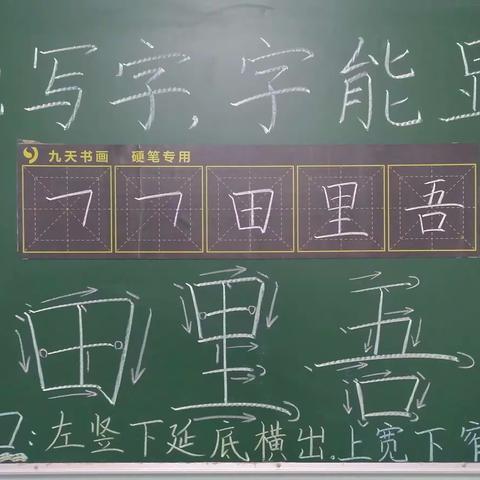 写字,字能
九天书画 硬笔专用
𠃍 𠃍 田 里 吾
田 里 吾
口:左竖下延底横出.上宽下窄